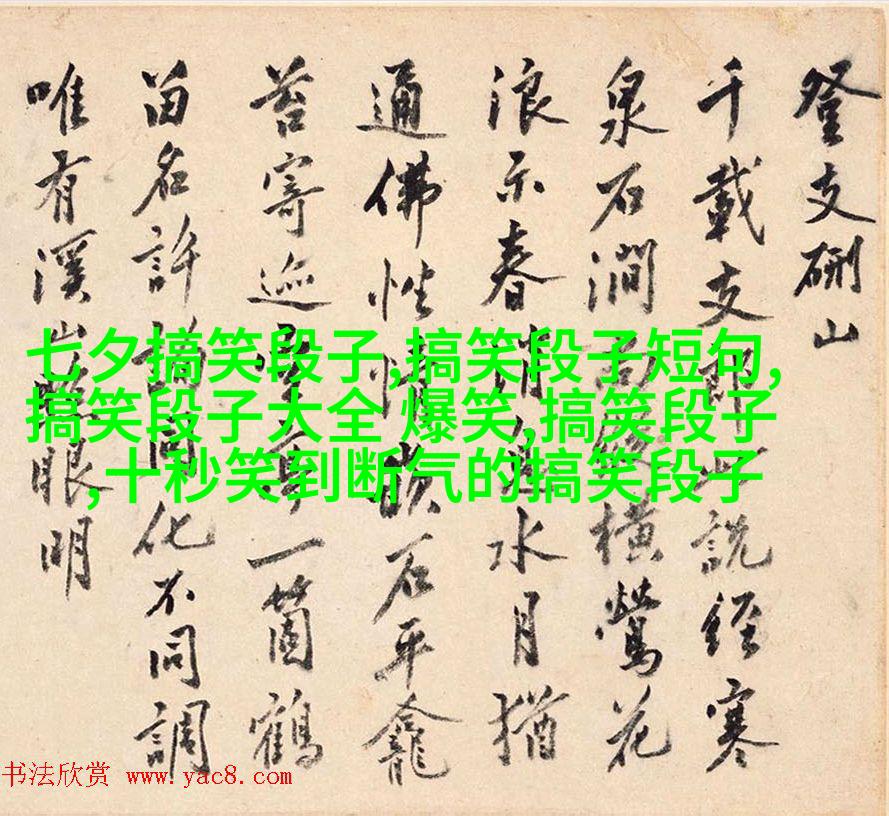 登支硎山
千載支郎此說經寒
泉石澗橫鶯花
浪示春消息水月猶
通佛性石平龕
苔寄迹一箇鶴
留名許同化不同調
唯有溪山眼明
七夕搞笑段子,搞笑段子短句,
搞笑段子大全 爆笑,搞笑段子
,十秒笑到断气的搞笑段子
书法欣赏 www.yac8.com